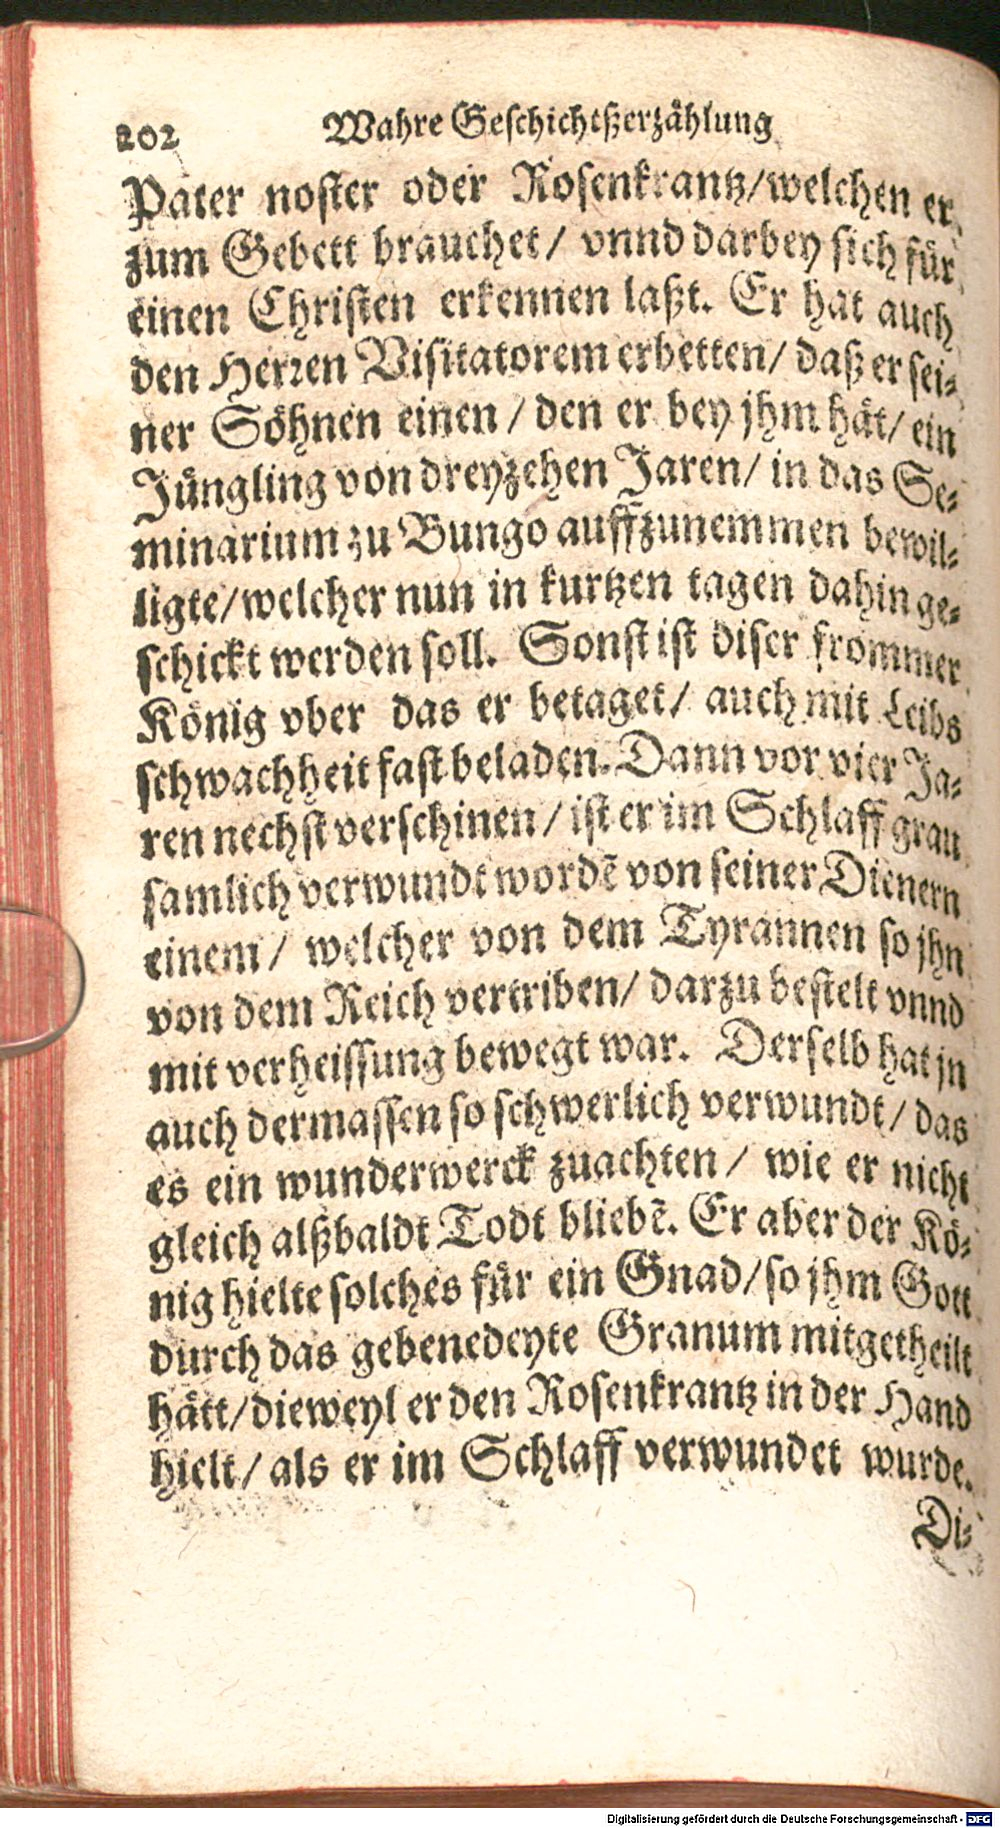 202 Wahre Geschichtßerzählung
Pater noster oder Rosenkrantz/welchen er
zum Gebett brauchet/ vnnd darbey sich für
einen Christen erkennen laßt. Er hat auch
den Herren Visitatorem erbetten/ daß er sei-
ner Söhnen einen / den er bey jhm hät/ ein
Jüngling von dreyzehen Jaren/ in das Se-
minarium zu Bungo auffzunemmen bewil-
ligte/welcher nun in kurtzen tagen dahin ge-
schickt werden soll. Sonst ist diser frommer
König vber das er betaget/ auch mit Leibs
schwachheit fast beladen. Dann vor vier Ja-
ren nechst verschinen / ist er im Schlaff grau
samlich verwundt wordē von seiner Dienern
einem/ welcher von dem Tyrannen so jhn
von dem Reich vertriben/ darzu bestelt vnnd
mit verheissung bewegt war. Derselb hat jn
auch dermassen so schwerlich verwundt/ das
es ein wunderwerck zuachten / wie er nicht
gleich alßbaldt Todt bliebē. Er aber der Kö-
nig hielte solches für ein Gnad/so jhm Gott
durch das gebenedeyte Granum mitgetheilt
hätt/dieweyl er den Rosenkrantz in der Hand
hielt/ als er im Schlaff verwundet wurde.
Di-
Digitalisierung gefördert durch die Deutsche Forschungsgemeinschaft - DFG